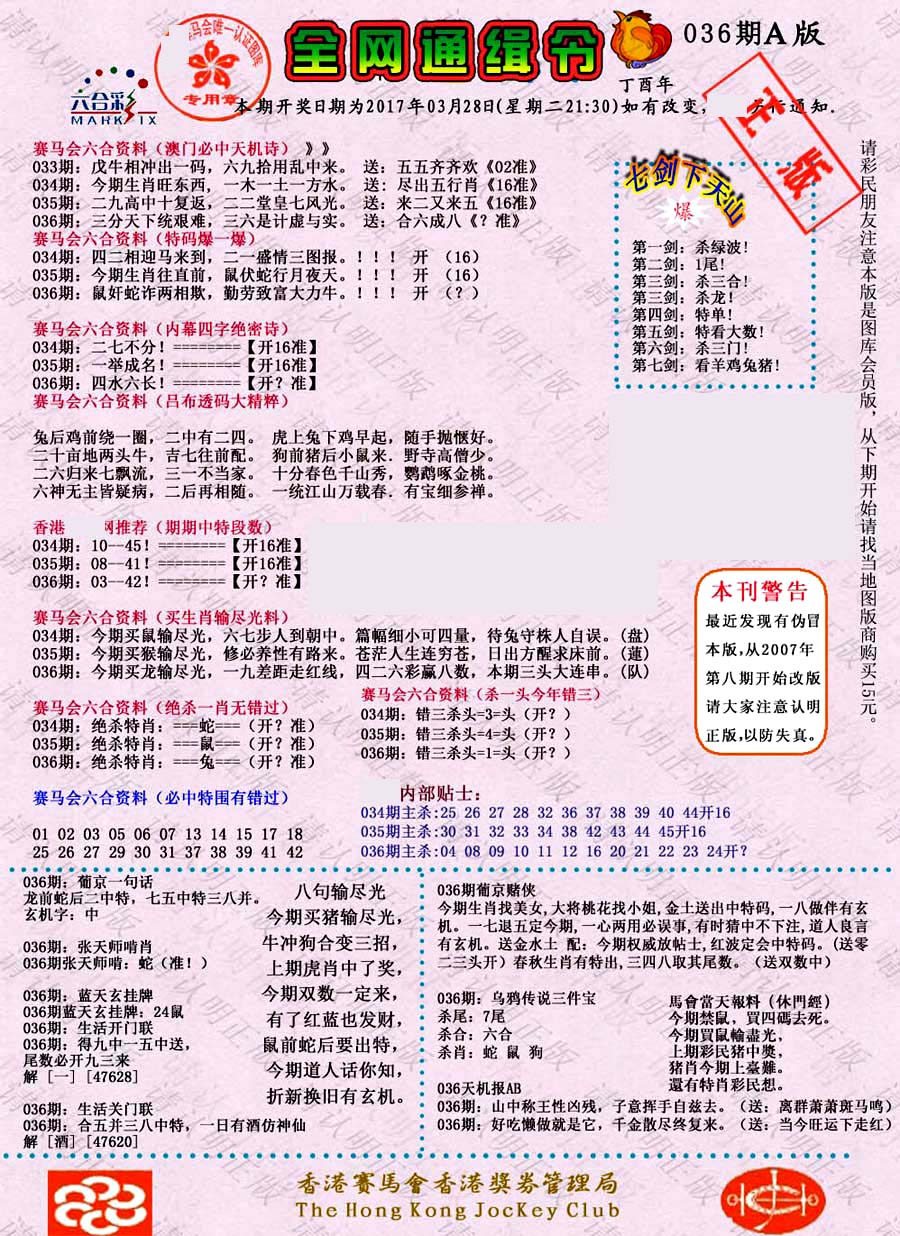 全网通缉令
036期A版
丁酉年
六合彩
MARK SIX
马会唯一认证图库
专用章
本期开奖日期为2017年03月28日(星期二21:30)如有改变,
通知.
正版
赛马会六合资料（澳门必中天机诗）》》
033期: 戊牛相冲出一码，六九拾用乱中来。 送: 五五齐齐欢《02准》
034期: 今期生肖旺东西，一木一土一方水。 送: 尽出五行肖《16准》
035期: 二九高中十复返，二二堂皇七风光。 送: 来二又来五《16准》
036期: 三分天下统艰难，三六是计虚与实。 送: 合六成八《？准》
赛马会六合资料（特码爆一爆）
034期: 四二相迎马来到，二一盛情三图报。！！！ 开 （16）
035期: 今期生肖往直前，鼠伏蛇行月夜天。！！！ 开 （16）
036期: 鼠奸蛇诈两相欺，勤劳致富大力牛。！！！ 开 （？）
七剑下天山
爆
第一剑: 杀绿波!
第二剑: 1尾!
第三剑: 杀三合!
第三剑: 杀龙!
第四剑: 特单!
第五剑: 特看大数!
第六剑: 杀三门!
第七剑: 看羊鸡兔猪!
请彩民朋友注意本版是图库会员版，从下期开始请找当地图版商购买15元。
赛马会六合资料（内幕四字绝密诗）
034期: 二七不分！========【开16准】
035期: 一举成名！========【开16准】
036期: 四水六长！========【开？准】
赛马会六合资料（吕布透码大精粹）
兔后鸡前绕一圈，二中有二四。 虎上兔下鸡早起，随手抛惬好。
二十亩地两头牛，吉七往前配。 狗前猪后小鼠来．野寺高僧少。
二六归来七飘流，三一不当家。 十分春色千山秀，鹦鹉啄金桃。
六神无主皆疑病，二后再相随。 一统江山万载春．有宝细参禅。
香港 网推荐（期期中特段数）
034期: 10--45！========【开16准】
035期: 08--41！========【开16准】
036期: 03--42！========【开？准】
赛马会六合资料（买生肖输尽光料）
034期: 今期买鼠输尽光，六七步人到朝中。篇幅细小可四量，待兔守株人自误。(盘)
035期: 今期买猴输尽光，修必养性有路来。苍茫人生连穷苍，日出方醒求床前。(蓮)
036期: 今期买龙输尽光，一九差距走红线，四二六彩赢八数，本期三头大连串。(队)
本刊警告
最近发现有伪冒
本版,从2007年
第八期开始改版
请大家注意认明
正版,以防失真。
赛马会六合资料（绝杀一肖无错过）
034期: 绝杀特肖: ===蛇===（开？准）
035期: 绝杀特肖: ===鼠===（开？准）
036期: 绝杀特肖: ===兔===（开？准）
赛马会六合资料（杀一头今年错三）
034期: 错三杀头=3=头（开？）
035期: 错三杀头=4=头（开？）
036期: 错三杀头=1=头（开？）
赛马会六合资料（必中特围有错过）
01 02 03 05 06 07 13 14 15 17 18
25 26 27 29 30 31 37 38 39 41 42
内部贴士:
034期主杀:25 26 27 28 32 36 37 38 39 40 44开16
035期主杀:30 31 32 33 34 38 42 43 44 45开16
036期主杀:04 08 09 10 11 12 16 20 21 22 23 24开？
036期: 葡京一句话
龙前蛇后二中特，七五中特三八并。
玄机字: 中
036期: 张天师啃肖
036期张天师啃: 蛇（准！）
036期: 蓝天玄挂牌
036期蓝天玄挂牌: 24鼠
036期: 生活开门联
036期: 得九中一五中送，
尾数必开九三来
解 [一] [47628]
036期: 生活关门联
036期: 合五并三八中特，一日有酒仿神仙
解 [酒] [47620]
八句输尽光
今期买猪输尽光，
牛冲狗合变三招，
上期虎肖中了奖，
今期双数一定来，
有了红蓝也发财，
鼠前蛇后要出特，
今期道人话你知，
折新换旧有玄机。
036期葡京赌侠
今期生肖找美女,大将桃花找小姐,金土送出中特码,一八做伴有玄
机。一七退五定今期,一心两用必误事,有时猜中不下注,道人良言
有玄机。送金水土 配: 今期权威放帖士,红波定会中特码。(送零
二三头开）春秋生肖有特出,三四八取其尾数。（送双数中）
036期: 乌鸦传说三件宝
杀尾: 7尾
杀合: 六合
杀肖: 蛇 鼠 狗
馬會當天報料（休門經）
今期禁鼠．買四碼去死。
今期買鼠輸盡光，
上期彩民猪中獎，
猪肖今期上臺難。
還有特肖彩民想。
036天机报AB
036期: 山中称王性凶残，子意挥手自兹去。（送: 离群萧萧斑马鸣）
036期: 好吃懒做就是它，千金散尽终复来。（送: 当今旺运下走红）
香港賽馬會香港獎券管理局
The Hong Kong JocKey Club